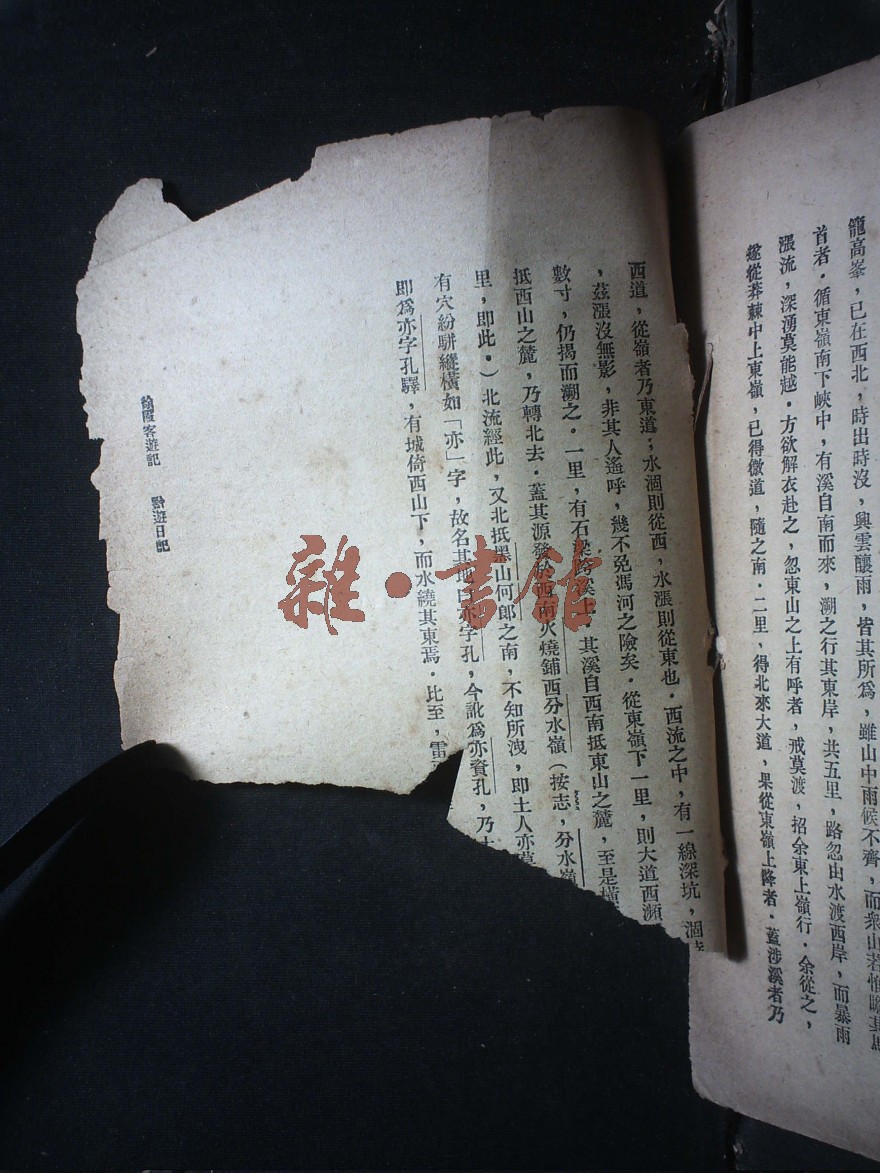 籠高峯，已在西北，時出時沒，興雲釀雨，皆其所為，雖山中雨候不齊，而衆山若惟瞻其馬
首者．循東嶺南下峽中，有溪自南而來，溯之行其東岸，共五里，路忽由水渡西岸，而暴雨
漲流，深湧莫能越．方欲解衣赴之，忽東山之上有呼者，戒莫渡，招余東上嶺行．余從之，
遂從莽棘中上東嶺，已得微道，隨之南．二里，得北來大道，果從東嶺上降者．蓋涉溪者乃
西道，從嶺者乃東道；水涸則從西，水漲則從東也．西流之中，有一線深坑，涸時
，茲漲沒無影，非其人遙呼，幾不免馮河之險矣．從東嶺下一里，則大道西瀕
數寸，仍揭而溯之．一里，有石梁跨溪上，其溪自西南抵東山之麓，至是橫
抵西山之麓，乃轉北去．蓋其源發於西南火燒鋪西分水嶺（按志，分水嶺
里，即此．）北流經此，又北抵黑山何郎之南，不知所洩，即土人亦莫
有穴紛騈縱橫如「亦」字，故名其地曰亦字孔，今訛為亦資孔，乃土
即爲亦字孔驛，有城倚西山下，而水繞其東焉．比至，雷
徐霞客遊記　黔遊日記
雜·書館